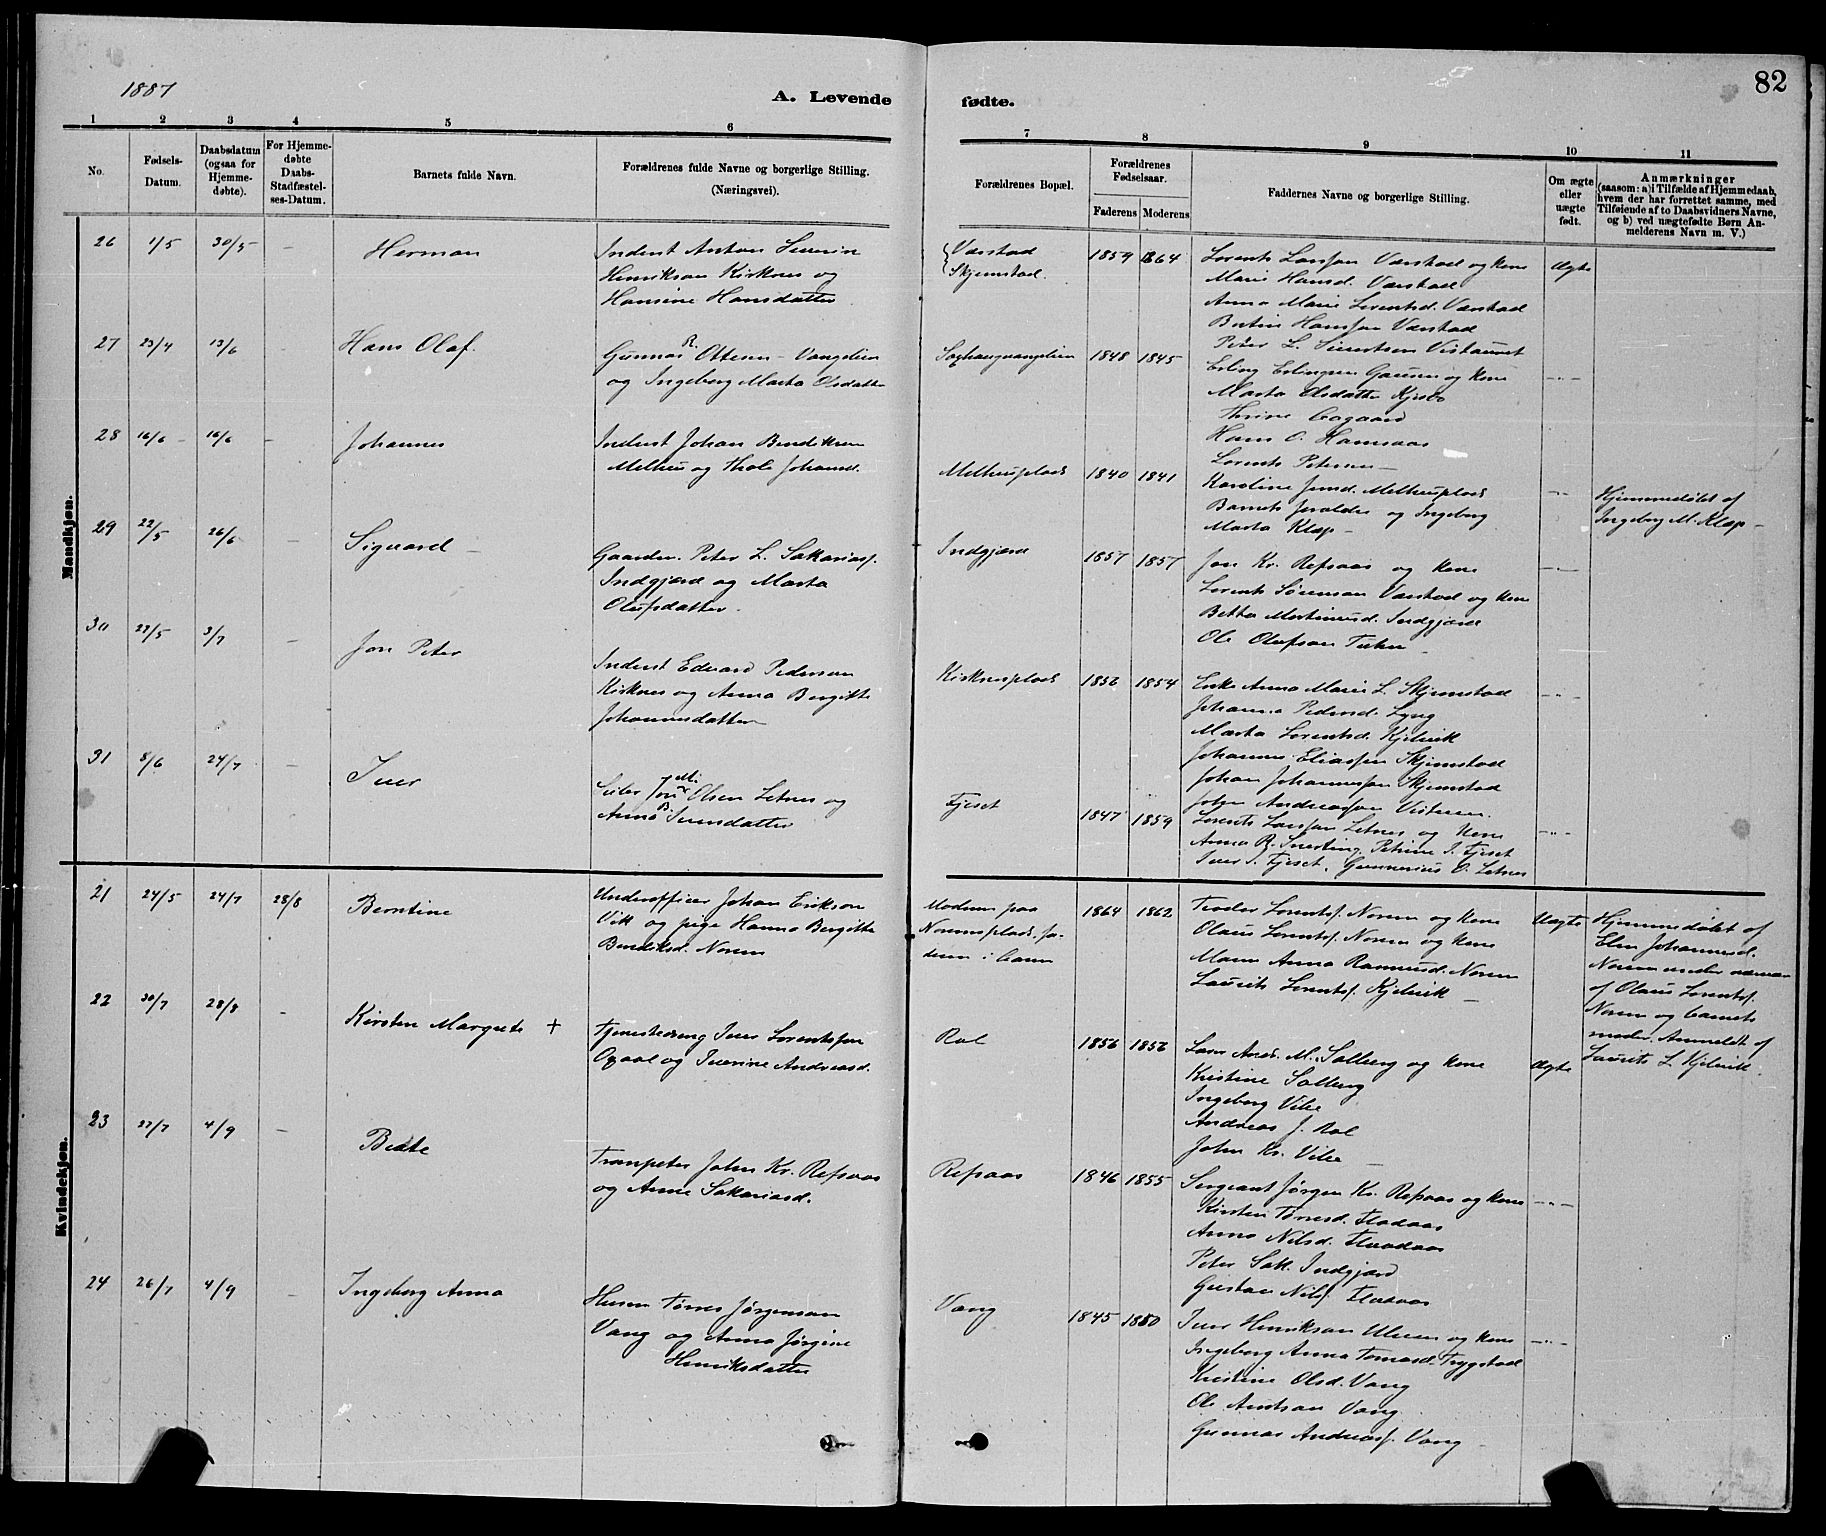 1887
A. Levende
fødte.
82
1 2 3 4 5 6 7 8 9 10 11
No.
Fødsels-
Datum.
Daabsdatum
(ogsaa for
Hjemme-
døbte).
For Hjemme-
døbte
Daabs-
Stadfæstel-
ses-Datum.
Barnets fulde Navn.
Forældrenes fulde Navne og borgerlige Stilling.
(Næringsvei).
Forældrenes Bopæl.
Forældrenes
Fødselsaar.
Faderens Moderens
Faddernes Navne og borgerlige Stilling.
Om ægte
eller
uægte
født.
Anmærkninger
(saasom: a) i Tilfælde af Hjemmedaab,
hvem der har forrettet samme, med
Tilføiende af to Daabsvidners Navne,
og b) ved uægtefødte Børn An-
melderens Navn m. V.)
Mandkjøn.
26 1/5 30/5 - Herman
Inderst Anton Severin
Henriksen Kirknes og
Hansine Hansdatter
Værstad
Skjemstad.
1859 1864
Lorents Larssen Værstad og kone
Marie Hansd. Værstad
Anna Marie Lorentsd. Værstad
Hanssen Værstad
Peter L.
Ægte
27 23/4 13/6 - Hans Olaf.
Gunnar R. Otesen Vangelien
og Ingeborg Marta Olsdatter
1848 1845
Erling Erlingsen og kone
Marta Olsdatter
Hans O.
Lorents Petersen
-"-
28 16/6 - 16/6 - Johannes
Inderst Johan Bendiksen
Melhus og Johansd.
Melhusplads
1840 1841
Karoline Jensd. Melhusplads
Barnets forældre og Ingeborg
Marta Klæp -
-"-
Hjemmedøbt af
Ingeborg M. Klæp -
29 22/5 26/6 - Sigvard -
Gaardbr. Peter L. Sakariasf.
Indgjærd og Marta
Olufsdatter.
Indgjærd
1857 1857
Jon Kr. Refsaas og kone
Lorents Sørensen Værstad og kone
Martinusd. Indgjærd
Ole Olufsen
-"-
30 27/5 3/7 - Jon Peter
Inderst Edvard Pedersen
Kirknes og Anna Bergitte
Johannesdatter
Kirknesplads
1856 1854
Enke Anna Marie L. Skjemstad
Johanna Pedersd. Lyng
Marta Lorentsd. Kjelvik
Johannes Eliassen Skjemstad
Johan Johannessen Skjemstad
John Andreassen
-"-
31 8/6 24/7 - Iver
M. Olsen Letnes og
Anna B. Iversdatter
Fjeset
1847 1859
Lorents Larssen Letnes og kone
Anna B. Petrine I. Fjeset
Iver I. Fjeset. Gunnerius O. Letnes
-"-
Kvindekjøn.
21 24/5 24/7 28/8 Berntine
Underofficer Johan Erikson
Vik og pige Hanna Bergitte
Bendiksd. Norem
Moderen paa
Noremsplads. fa-
deren i
1864 1862
Teodor Lorentsf. Norem og kone
Olaus Lorentsf. Norem og kone
Anna Rasmusd. Norem
Laurits Lorentsf. Kjelvik -
Uægte
Hjemmedøbt af
Elen Johannesd.
Norem under nærvær
af Olaus Lorentsf.
Norem og barnets
moder. Anmeldt af
Laurits L. Kjelvik
22 30/7 28/8 - Kirsten Margrete +
Tjenestedreng Iver Lorentssen
og Iverine Andreasd.
Rol
1856 1856
Lars Andr. M. Salberg og kone
Kristine Salberg
Ingeborg Vibe
Andreas J. Rol
John Kr. Vibe
Ægte
23 27/7 4/9 - Beate
Trompeter John Kr. Refsaas
og Anne Sakariasd.
Refsaas
1846 1855
Sergeant Jørgen Kr. Refsaas og kone
Kirsten Tørresd. Flaadaas
Anna Nilsd. Flaadaas
Peter Sak. Indgjærd
Gustav Nilsf. Flaadaas
-"-
24 26/7 4/9 - Ingeborg Anna
Husm. Tørres Jørgensen
Vang og Anna Jørgine
Henriksdatter
Vang
1845 1850
Iver Henriksen og kone
Ingeborg Anna Tomasd. Trygstad
Kristine Olsd. Vang
Ole Arntsen Vang
Gunnar Andreasf. Vang -
-"-